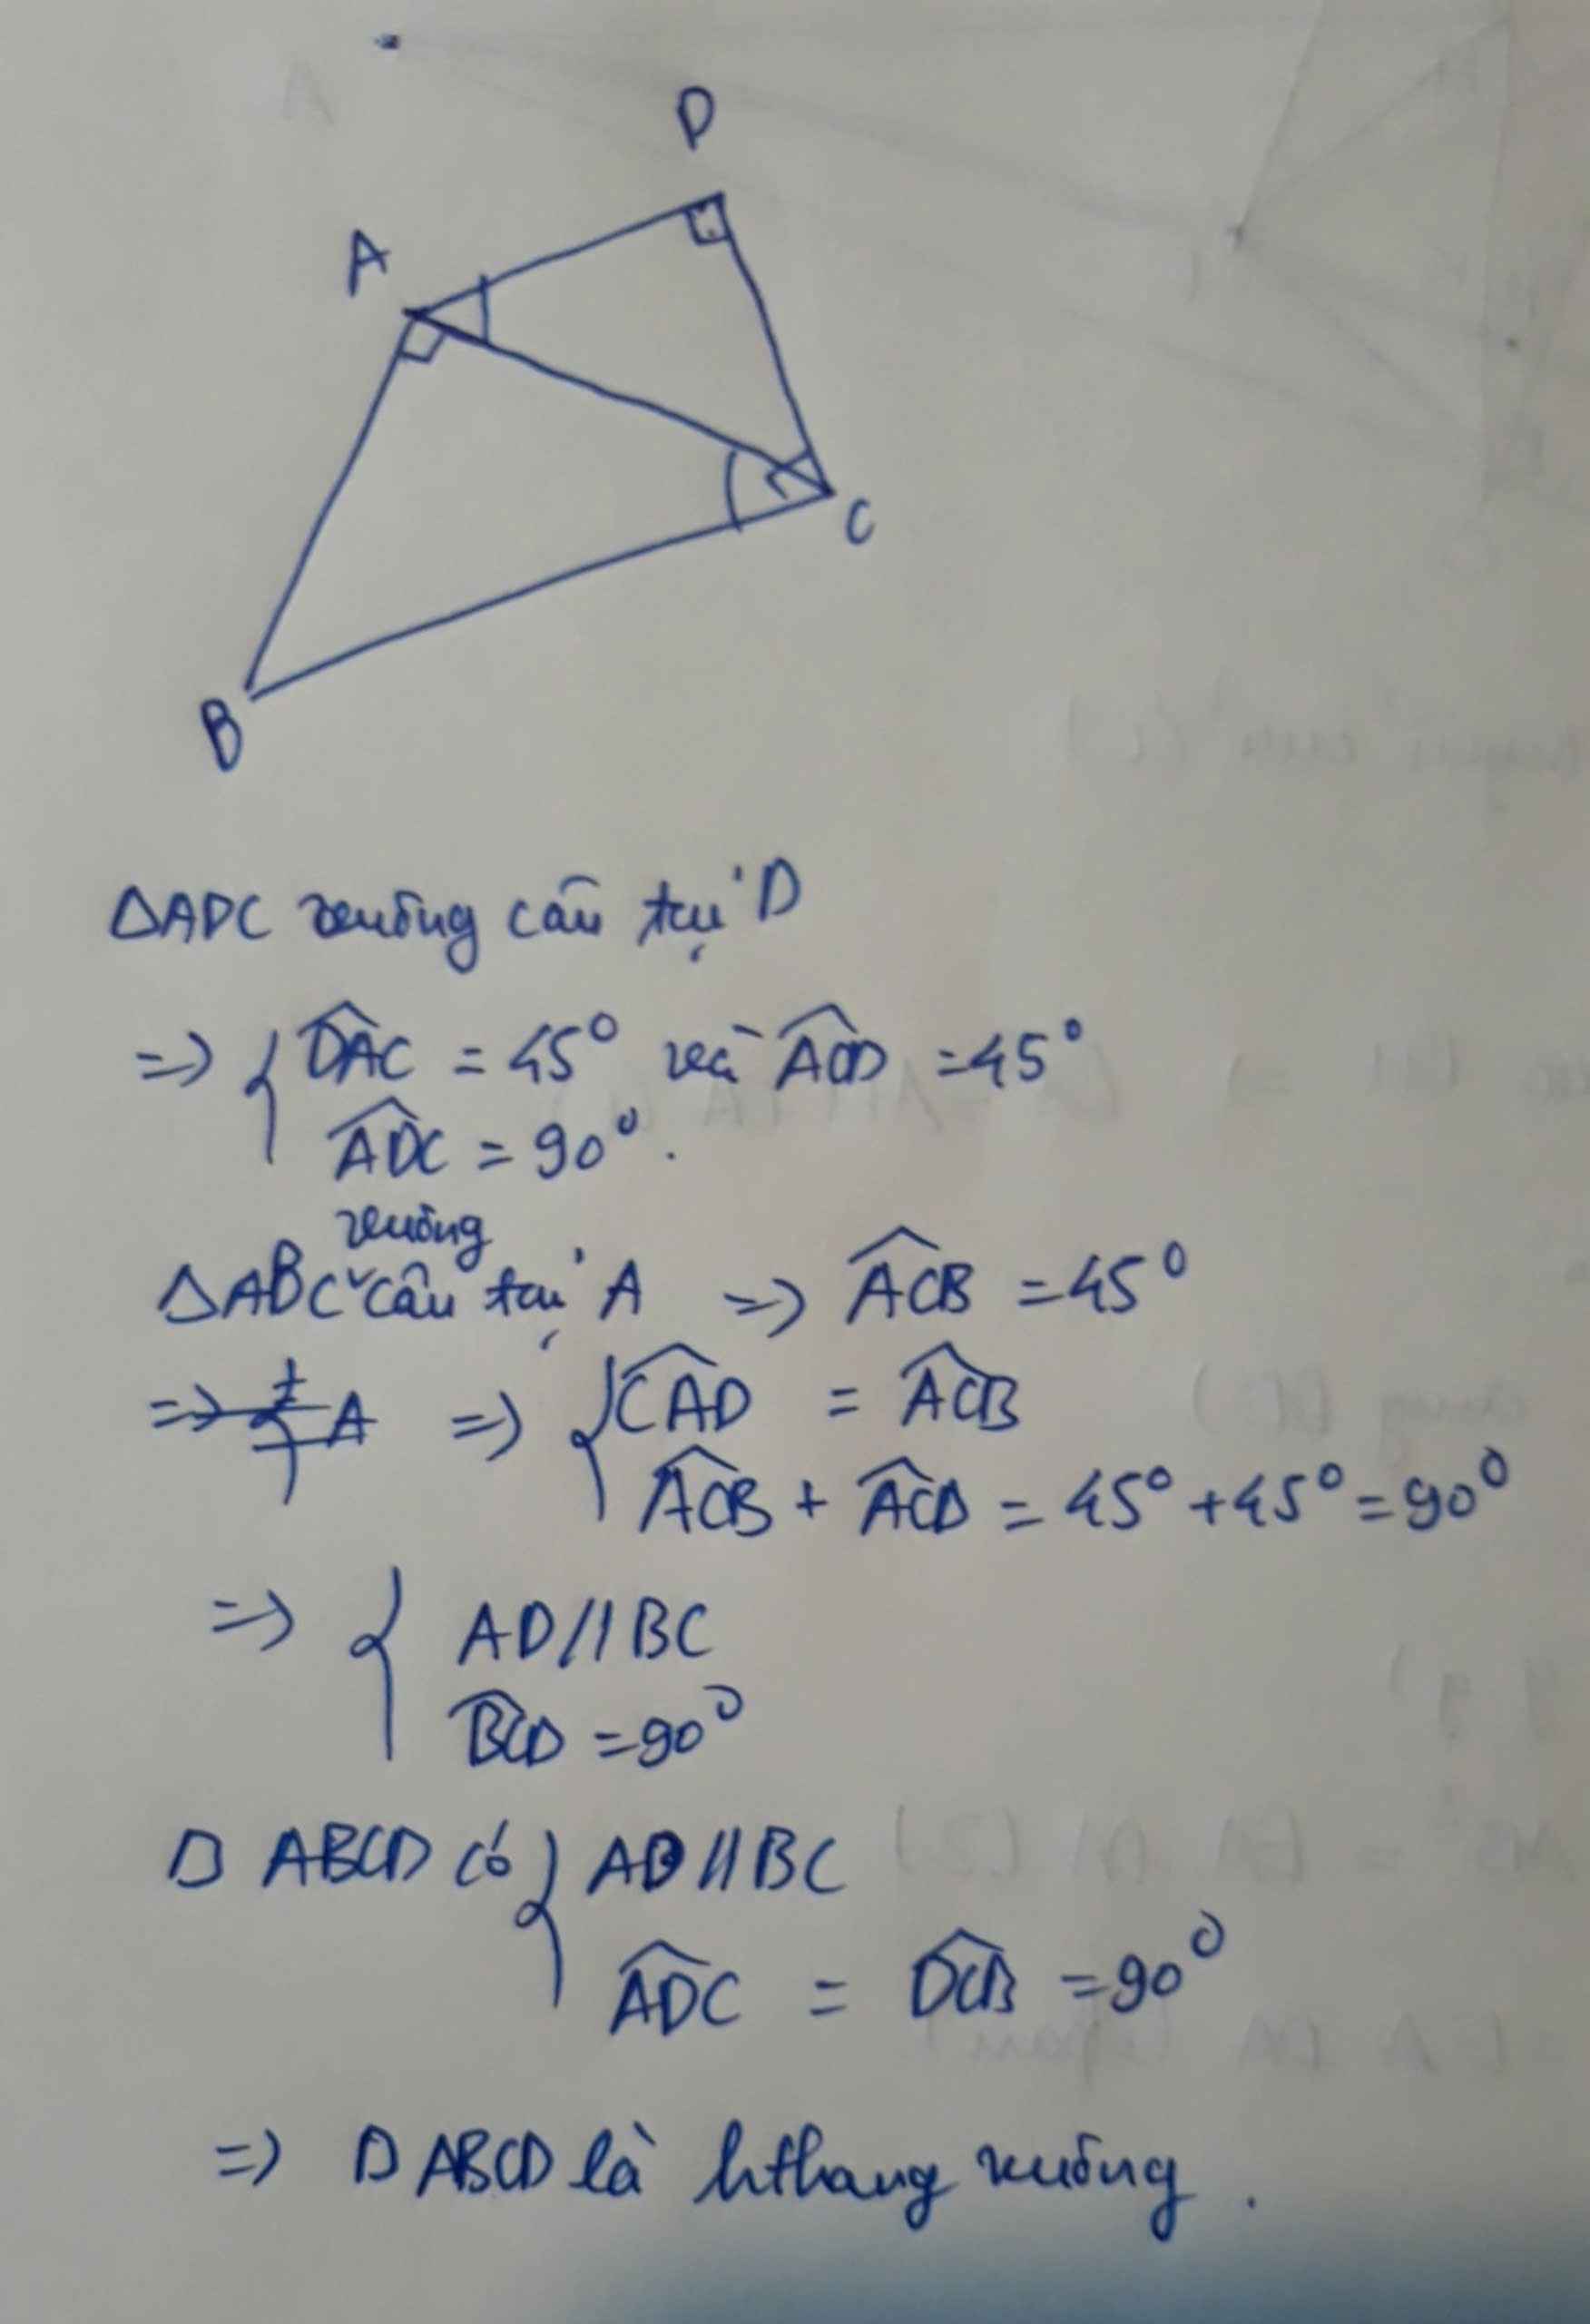 D
A
C
B
ΔADC vuông cân tại D
=> { \widehat{DAC} = 45° và \widehat{ACD} = 45°
\widehat{ADC} = 90°.
vuông
ΔABC ˅ cân tại A => \widehat{ACB} = 45°
=> { \widehat{CAD} = \widehat{ACB}
\widehat{ACB} + \widehat{ACD} = 45° + 45° = 90°
=> { AD // BC
\widehat{BCD} = 90°
□ ABCD có { AD // BC
\widehat{ADC} = \widehat{DCB} = 90°
=> □ ABCD là hthang vuông.